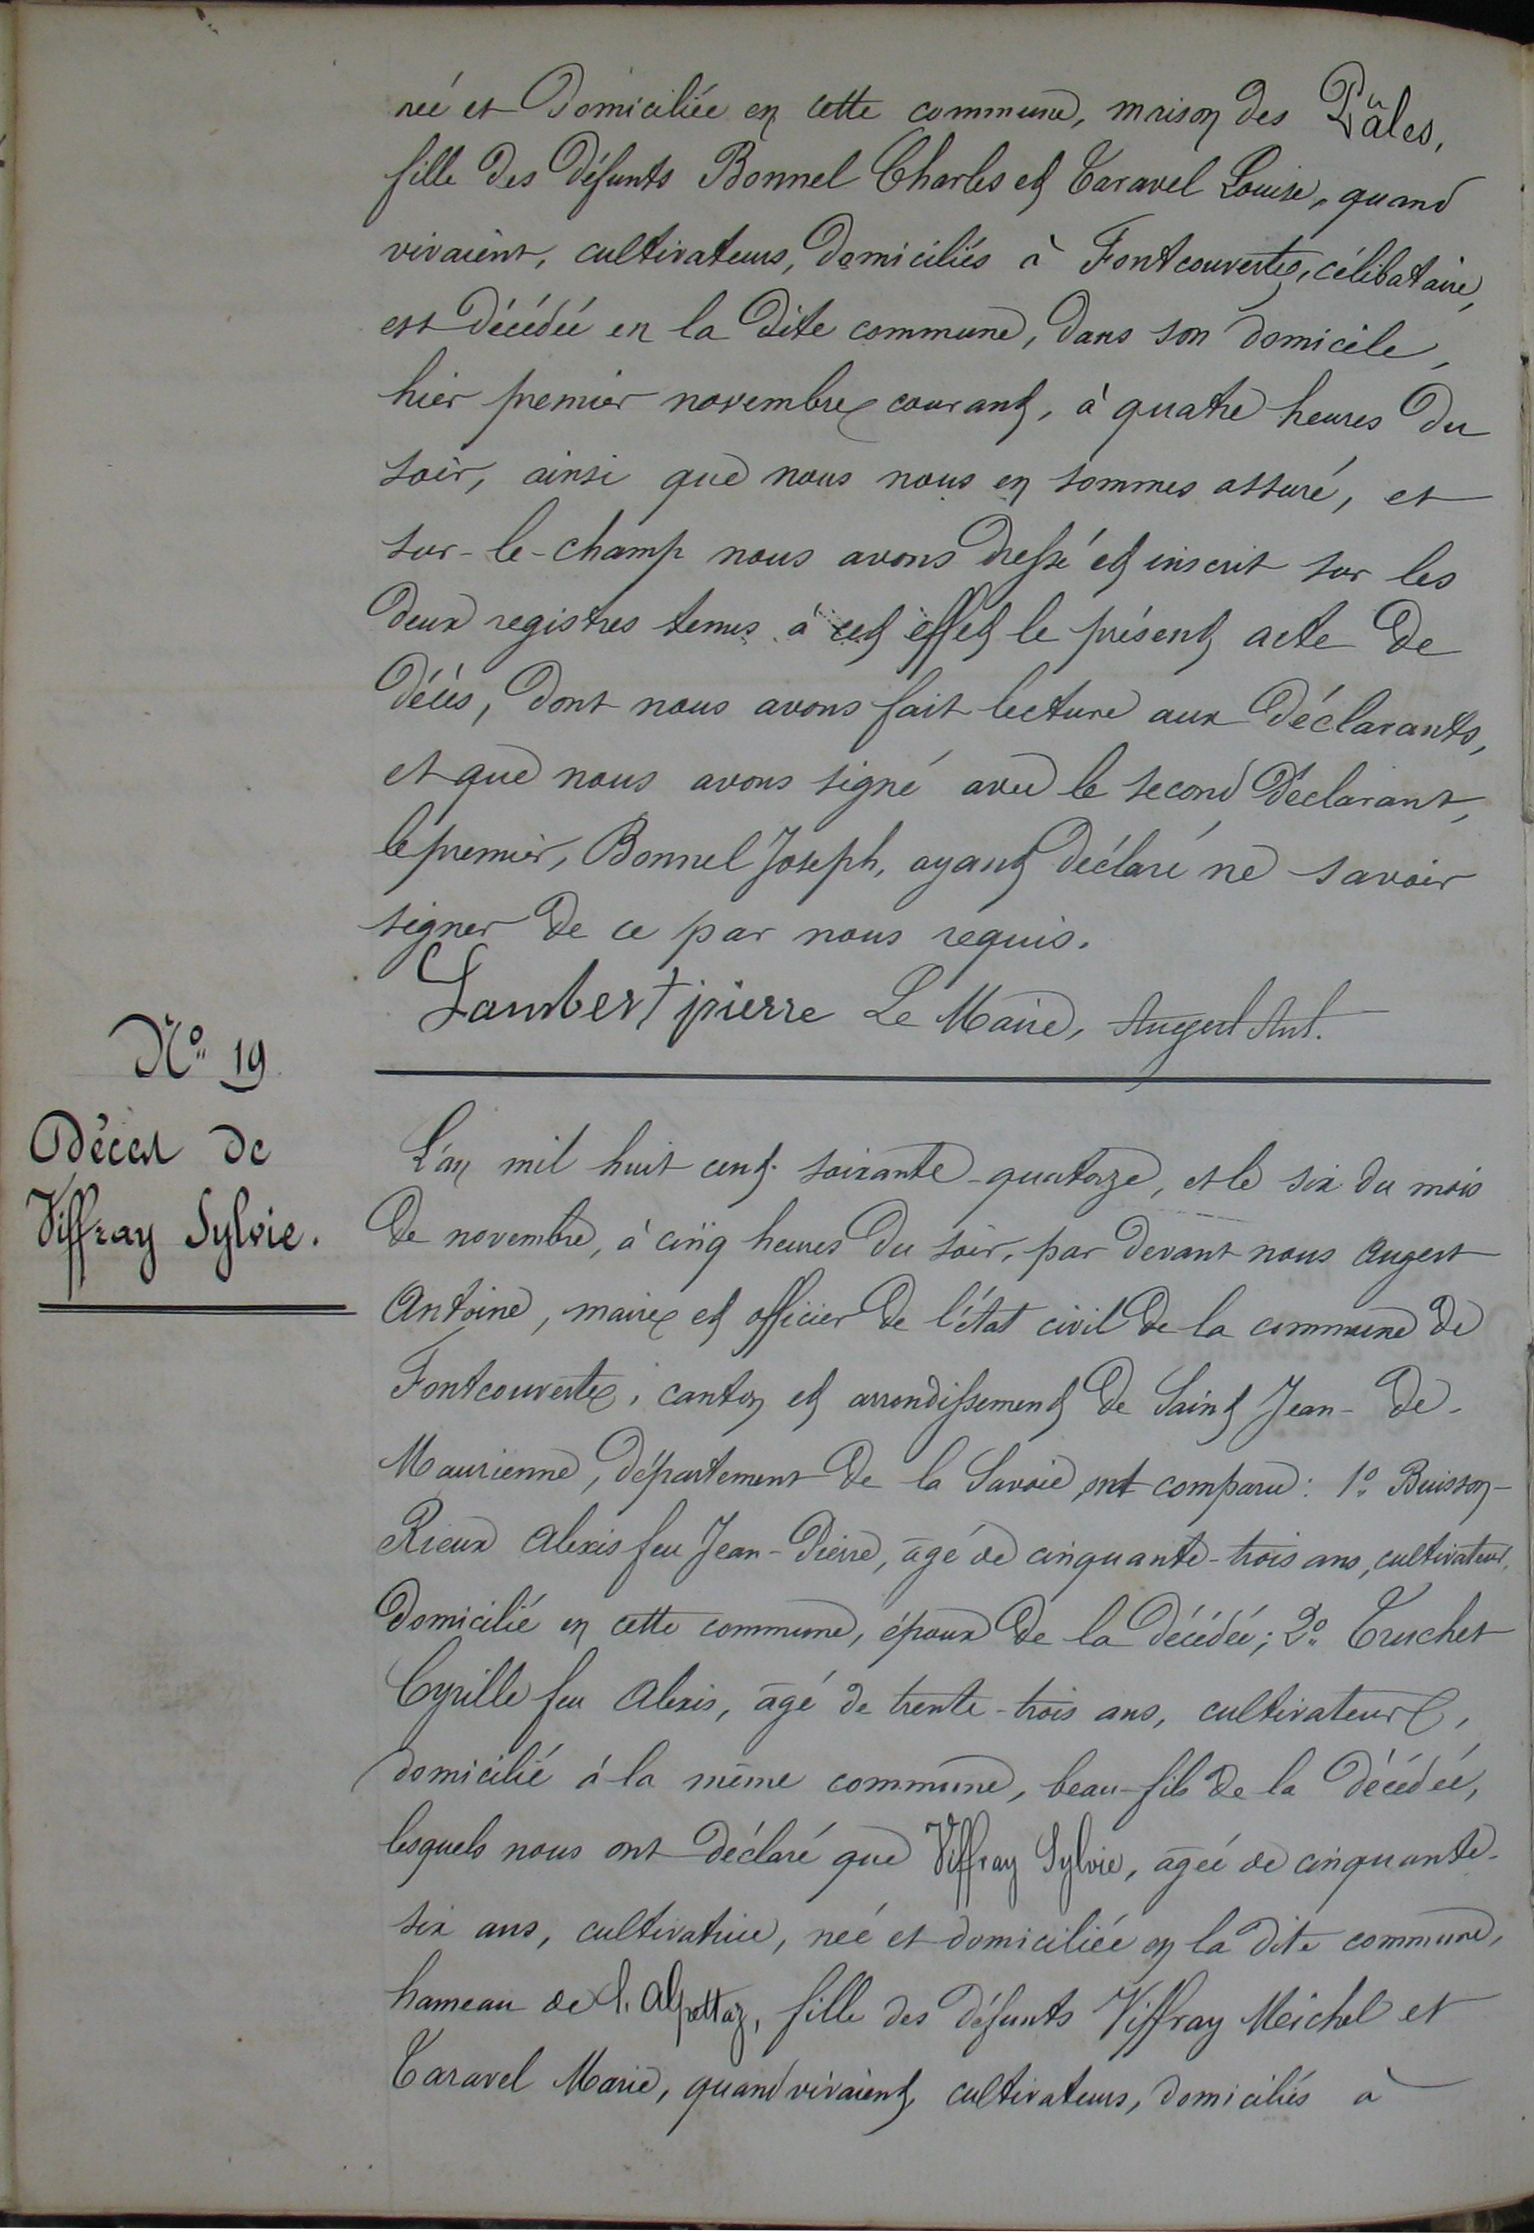 née et domiciliée en cette commune, maison des Pâles,
fille des défunts Bonnel Charles et Taravel Louise, quand
vivaient, cultivateurs, domiciliés à Fontcouverte, célibataire,
est décédée en la dite commune, dans son domicile,
hier premier novembre courant, à quatre heures du
soir, ainsi que nous nous en sommes assuré, et
sur-le-champ nous avons dressé et inscrit sur les
deux registres tenus à cet effet le présent acte de
décès, dont nous avons fait lecture aux déclarants,
et que nous avons signé avec le second déclarant,
le premier, Bonnel Joseph, ayant déclaré ne savoir
signer de ce par nous requis.
Lambert pierre Le Maire, Augert Ant.
N° 19
Décès de
Viffray Sylvie.
L'an mil huit cent soixante-quatorze, et le six du mois
de novembre, à cinq heures du soir, par devant nous Augert
Antoine, maire et officier de l'état civil de la commune de
Fontcouverte, canton et arrondissement de Saint Jean-de-
Maurienne, département de la Savoie, ont comparu: 1° Buisson-
Rieux Alexis feu Jean-Pierre, âgé de cinquante-trois ans, cultivateur,
domicilié en cette commune, époux de la décédée; 2° Truchet
Cyrille feu Alexis, âgé de trente-trois ans, cultivateur,
domicilié à la même commune, beau-fils de la décédée,
lesquels nous ont déclaré que Viffray Sylvie, âgée de cinquante-
six ans, cultivatrice, née et domiciliée en la dite commune,
hameau de l'Alpettaz, fille des défunts Viffray Meichel et
Taravel Marie, quand vivaient, cultivateurs, domiciliés à